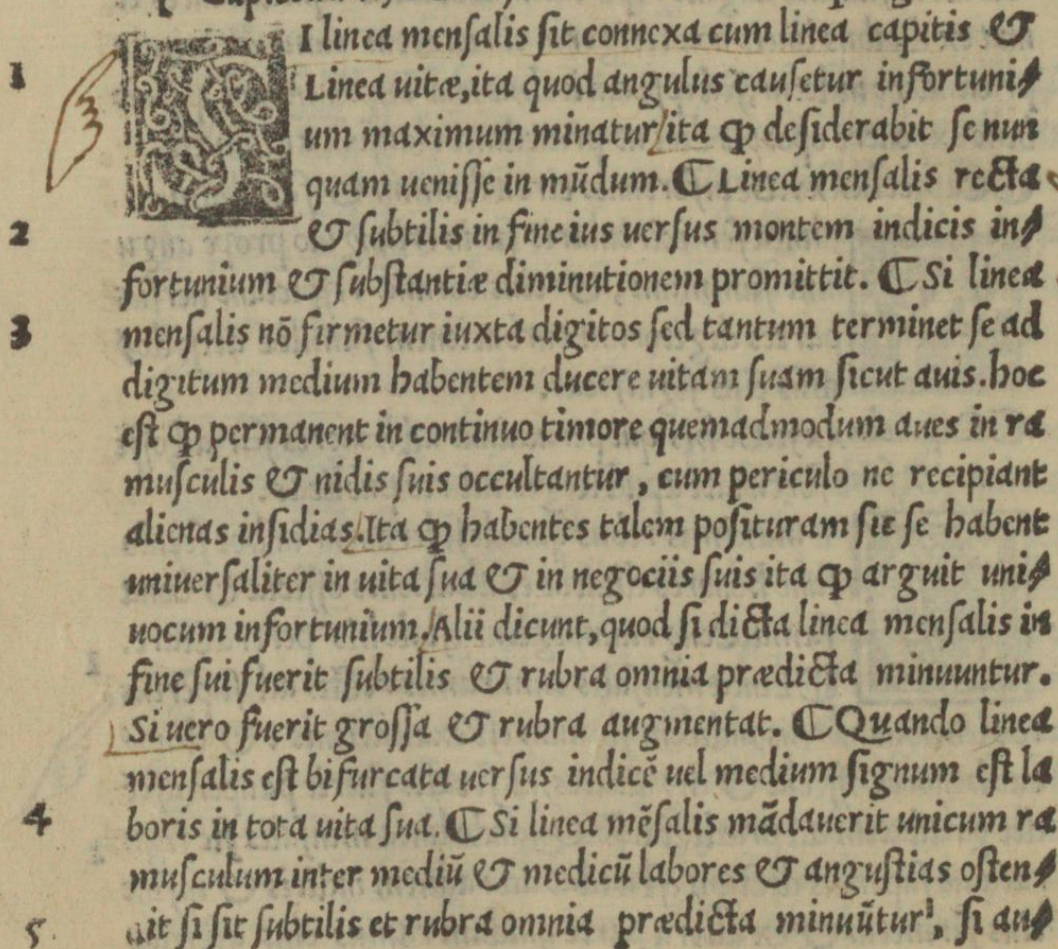 SI linea menſalis ſit connexa cum linea capitis &
1 Linea uitæ, ita quod angulus cauſetur infortuni⸗
um maximum minatur/ita ꝙ deſiderabit ſe nun
quam ueniſſe in mūdum. ⸿ Linea menſalis recta
2 & ſubtilis in fine ius uerſus montem indicis in⸗
fortunium & ſubſtantiæ diminutionem promittit. ⸿ Si linea
3 menſalis nō firmetur iuxta digitos ſed tantum terminet ſe ad
digitum medium habentem ducere uitam ſuam ſicut auis. hoc
eſt ꝙ permanent in continuo timore quemadmodum aues in ra
muſculis & nidis ſuis occultantur, cum periculo ne recipiant
alienas inſidias. Ita ꝙ habentes talem poſituram ſic ſe habent
uniuerſaliter in uita ſua & in negociis ſuis ita ꝙ arguit uni⸗
uocum infortunium. Alii dicunt, quod ſi dicta linea menſalis in
fine ſui fuerit ſubtilis & rubra omnia prædicta minuuntur.
Si uero fuerit groſſa & rubra augmentat. ⸿ Quando linea
menſalis eſt bifurcata uerſus indicē uel medium ſignum eſt la
4 boris in tota uita ſua. ⸿ Si linea mēſalis mādauerit unicum ra
muſculum inter mediū & medicū labores & anguſtias oſten⸗
5 dit ſi ſit ſubtilis et rubra omnia prædicta minuūtur, ſi au⸗